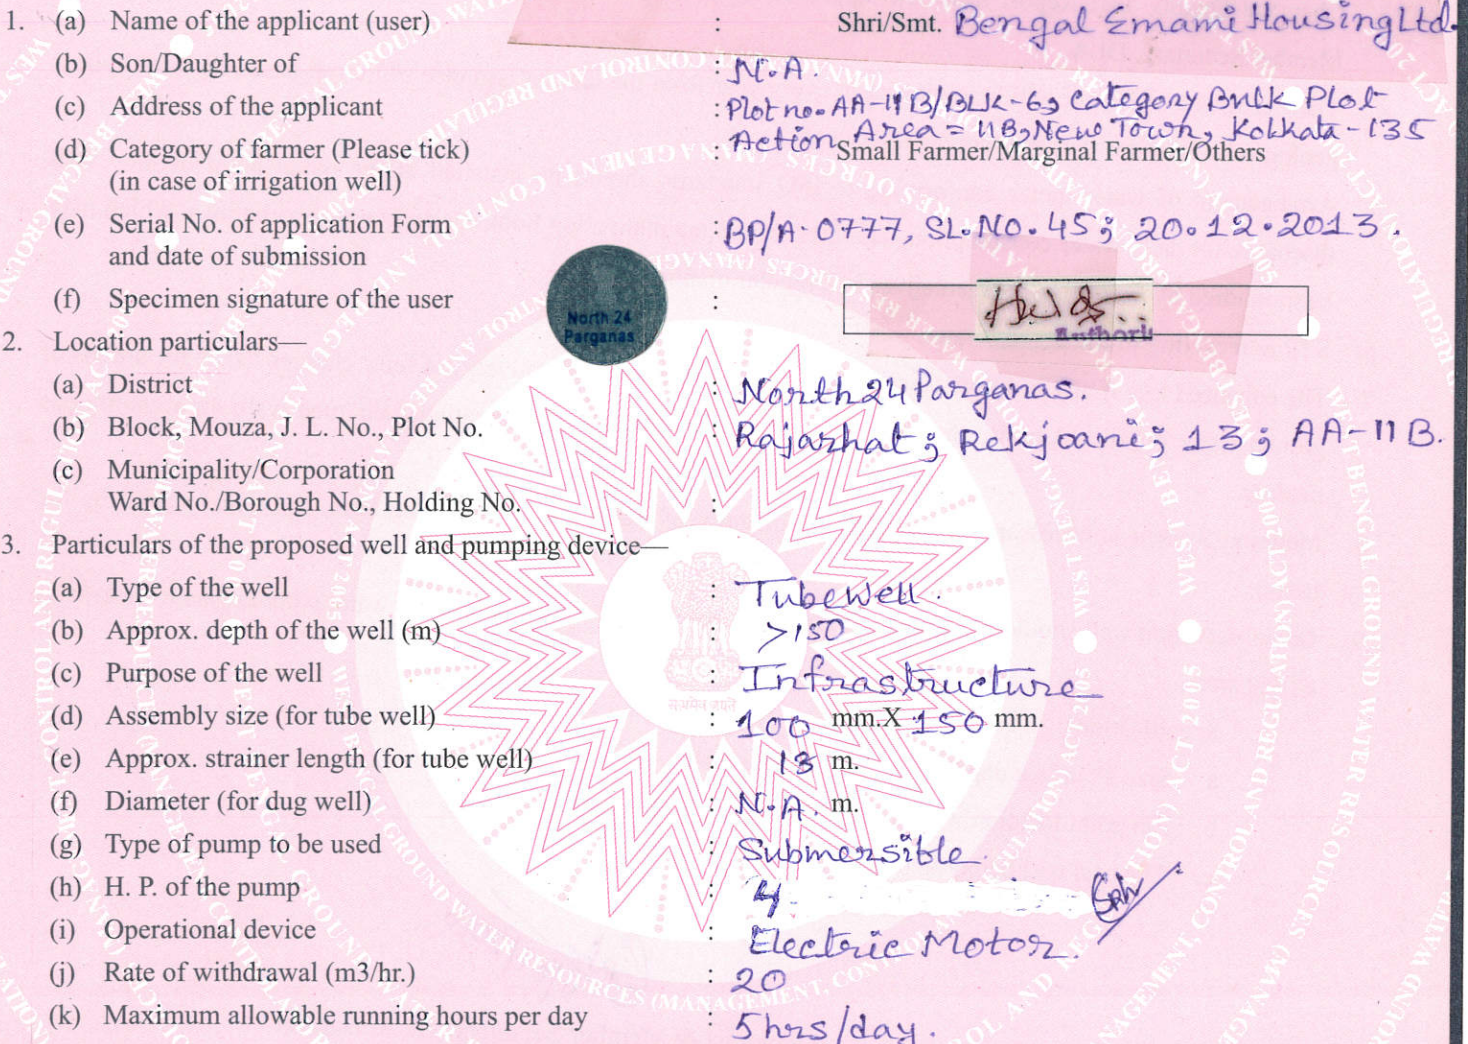 1. (a) Name of the applicant (user) : Shri/Smt. Bengal Emami Housing Ltd.
(b) Son/Daughter of : N.A.
(c) Address of the applicant : Plot no. AA-11B/BLK-6, Category Bulk Plot
Action Area = 11B, New Town, Kolkata-135
(d) Category of farmer (Please tick) : Small Farmer/Marginal Farmer/Others
(in case of irrigation well)
(e) Serial No. of application Form : BP/A-0777, SL.NO. 45; 20.12.2013.
and date of submission
(f) Specimen signature of the user :
North 24
Parganas
2. Location particulars—
(a) District : North 24 Parganas.
(b) Block, Mouza, J. L. No., Plot No. : Rajarhat; Rekjoani; 13; AA-11B.
(c) Municipality/Corporation
Ward No./Borough No., Holding No. :
3. Particulars of the proposed well and pumping device—
(a) Type of the well : Tubewell.
(b) Approx. depth of the well (m) : >150
(c) Purpose of the well : Infrastructure
(d) Assembly size (for tube well) : 100 mm.X 150 mm.
(e) Approx. strainer length (for tube well) : 13 m.
(f) Diameter (for dug well) : N.A. m.
(g) Type of pump to be used : Submersible
(h) H. P. of the pump : 4
(i) Operational device : Electric Motor.
(j) Rate of withdrawal (m3/hr.) : 20
(k) Maximum allowable running hours per day : 5hrs/day.